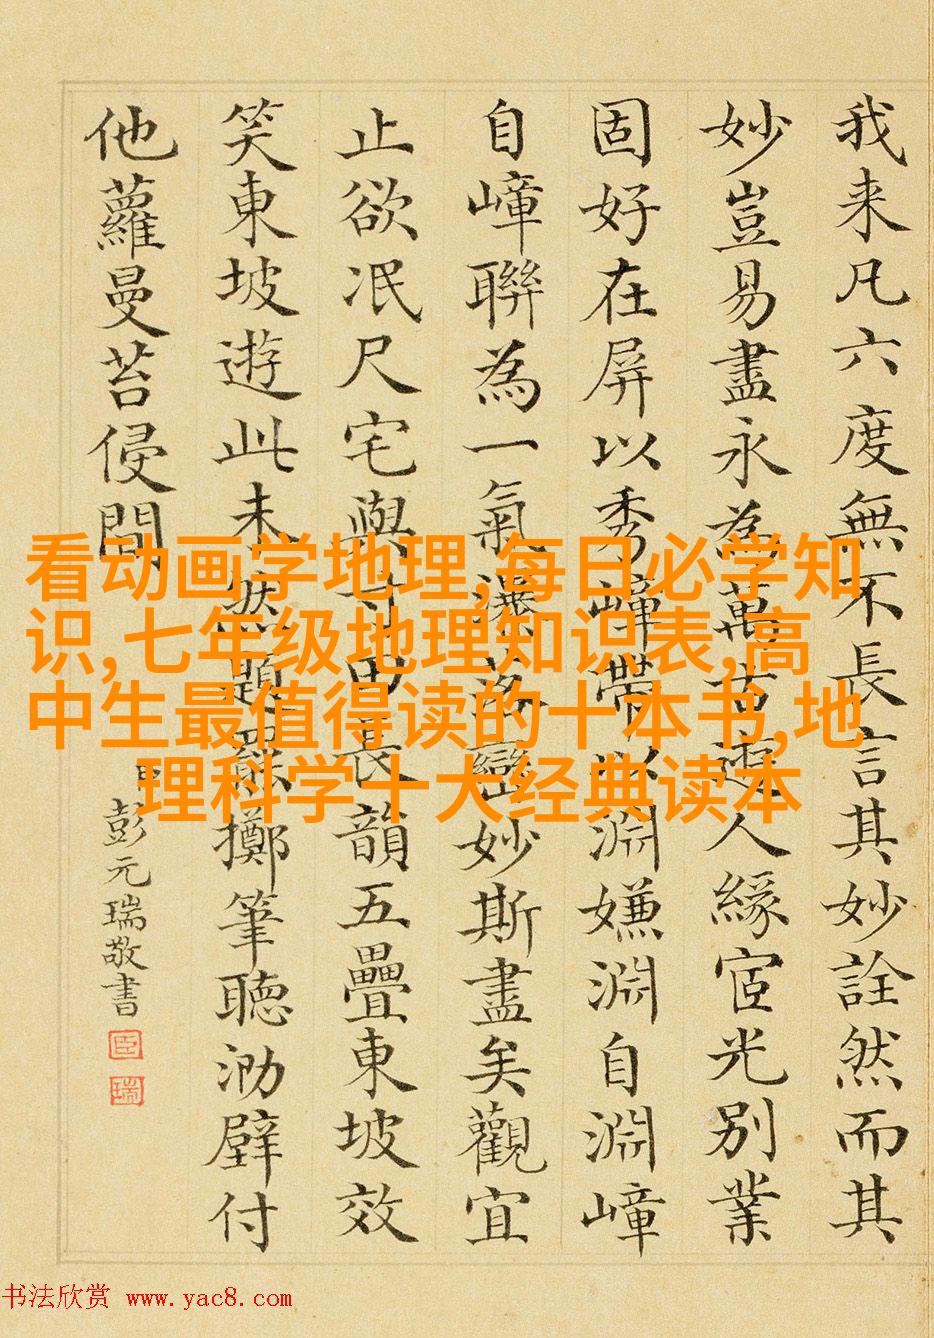 我来凡六度無不長言其妙詮然而其
妙豈易盡永為萬人緣宧光別業
固好在屏以秀嶂帶以淵嫌淵自淵嶂
自嶂聯為一氣瀑落巒妙斯盡矣觀宜
止欲泯尺宅與寸田長韻五疊東坡效
笑東坡遊此未然題罷擲筆聽泐壁付
他蘿曼苔侵間
臣彭元瑞敬書
臣
瑞
看动画学地理,每日必学知
识,七年级地理知识表,高
中生最值得读的十本书,地
理科学十大经典读本
书法欣赏 www.yac8.com